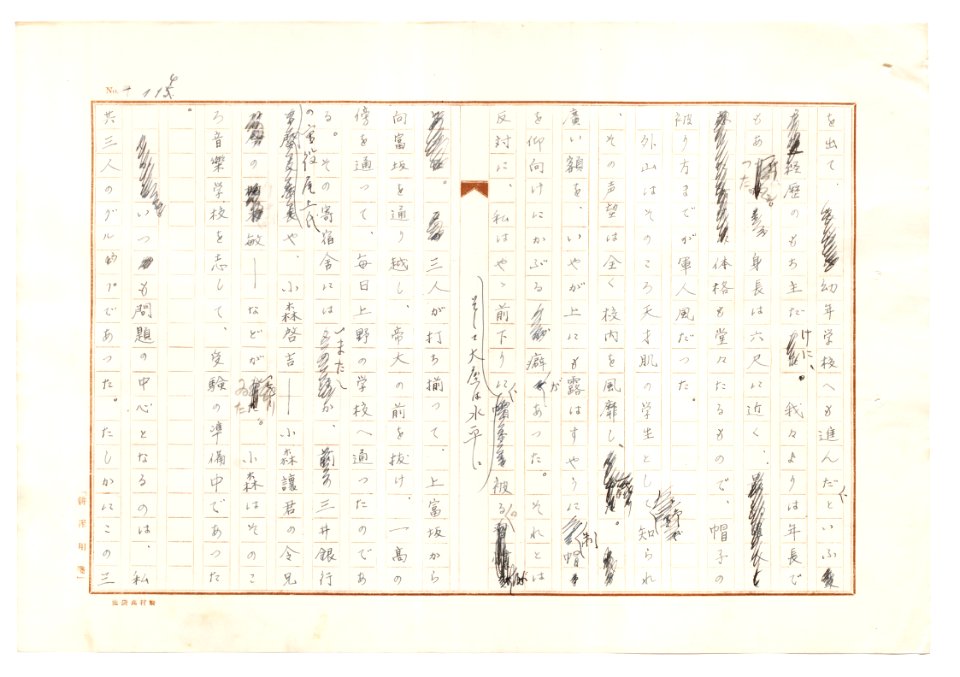 No. 4
を出て、幼年学校へも進んだといふ
経歴のもち主だけに、我々よりは年長で
もあつた。身長は六尺に近く、
体格も堂々たるもので、帽子の
被り方までが軍人風だつた
外山はそのころ天才肌の学生として知られ
、その声望は全く校内を風靡し、
廣い額を、いやが上にも露はすやうに制帽
を仰向けにかぶる癖があつた。それとは
反対に、私はやゝ前下りに被る
そして大原は水平に
三人が打ち揃つて、上富坂から
向富坂を通り越し、帝大の前を抜け、一高の
傍を通つて、毎日上野の学校へ通つたのであ
る。その寄宿舎にはまた、三井銀行
の重役尾上代
や、小森啓吉——小森譲君の令兄
の敏——などがゐた。小森はそのこ
ろ音楽学校を志して、受験の準備中であつた
。
いつも問題の中心となるのは、私
共三人のグループであつた。たしかにこの三